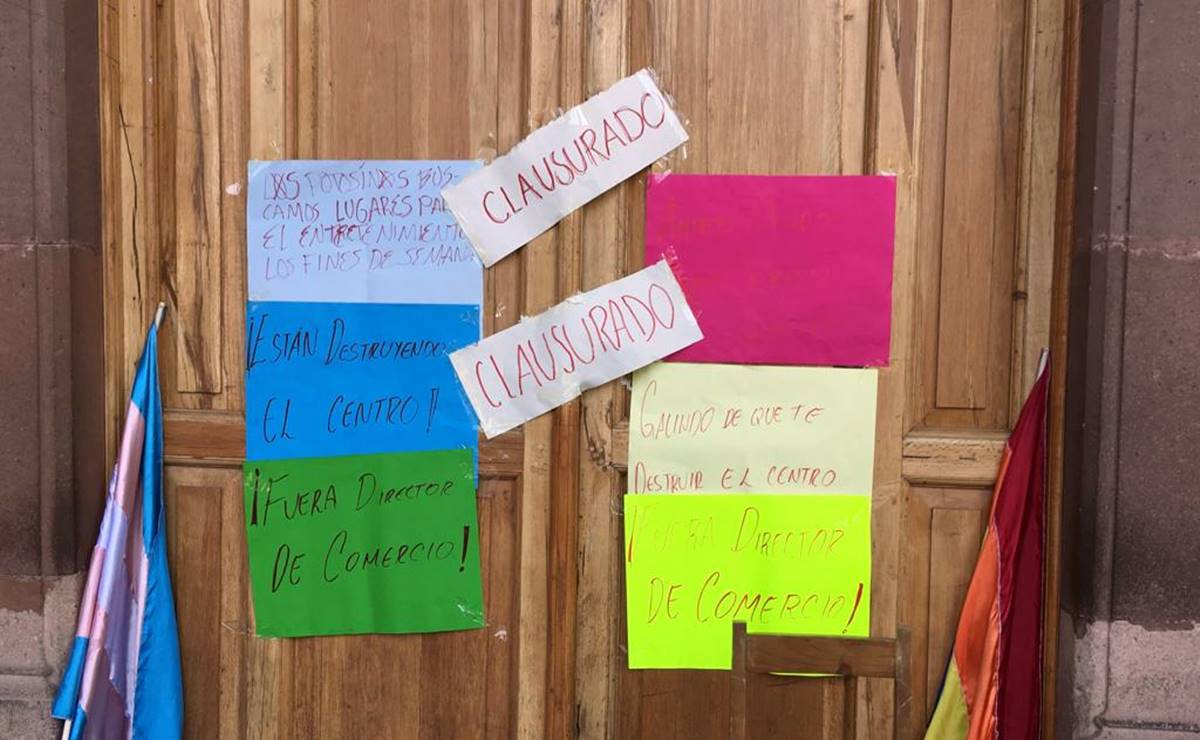 LXS POTOSINXS BUS-
CAMOS LUGARES PAR
EL ENTRETENIMIENTO
LOS FINES DE SEMANA
¡ESTÁN DESTRUYENDO
EL CENTRO!
¡FUERA DIRECTOR
DE COMERCIO!
CLAUSURADO
CLAUSURADO
GALINDO DE QUE TE
DESTRUIR EL CENTRO
¡FUERA DIRECTOR
DE COMERCIO!